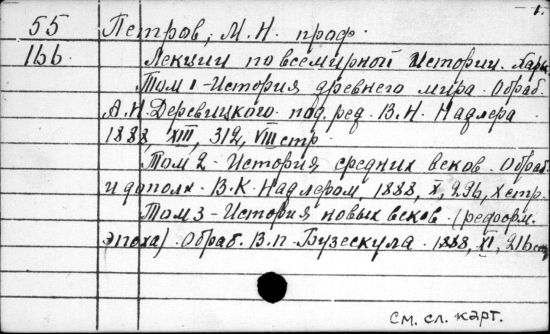 - 1.
55 Петров, М. Н. проф.
166. Лекции по всемирной Истории. Харьк
Том 1 - История древнего мира. Обраб.
А. Н. Деревицкого под ред. В. Н. Надлера
1888, XIII, 312, VIII стр.
Том 2 - История средних веков. Обраб.
и дополн. В. К. Надлером 1888, X, 296, X стр.
Том 3 - История новых веков. (реформ.
эпоха). Обраб. В. П. Бузескула. 1888, XI, 216 стр
см. сл. карт.